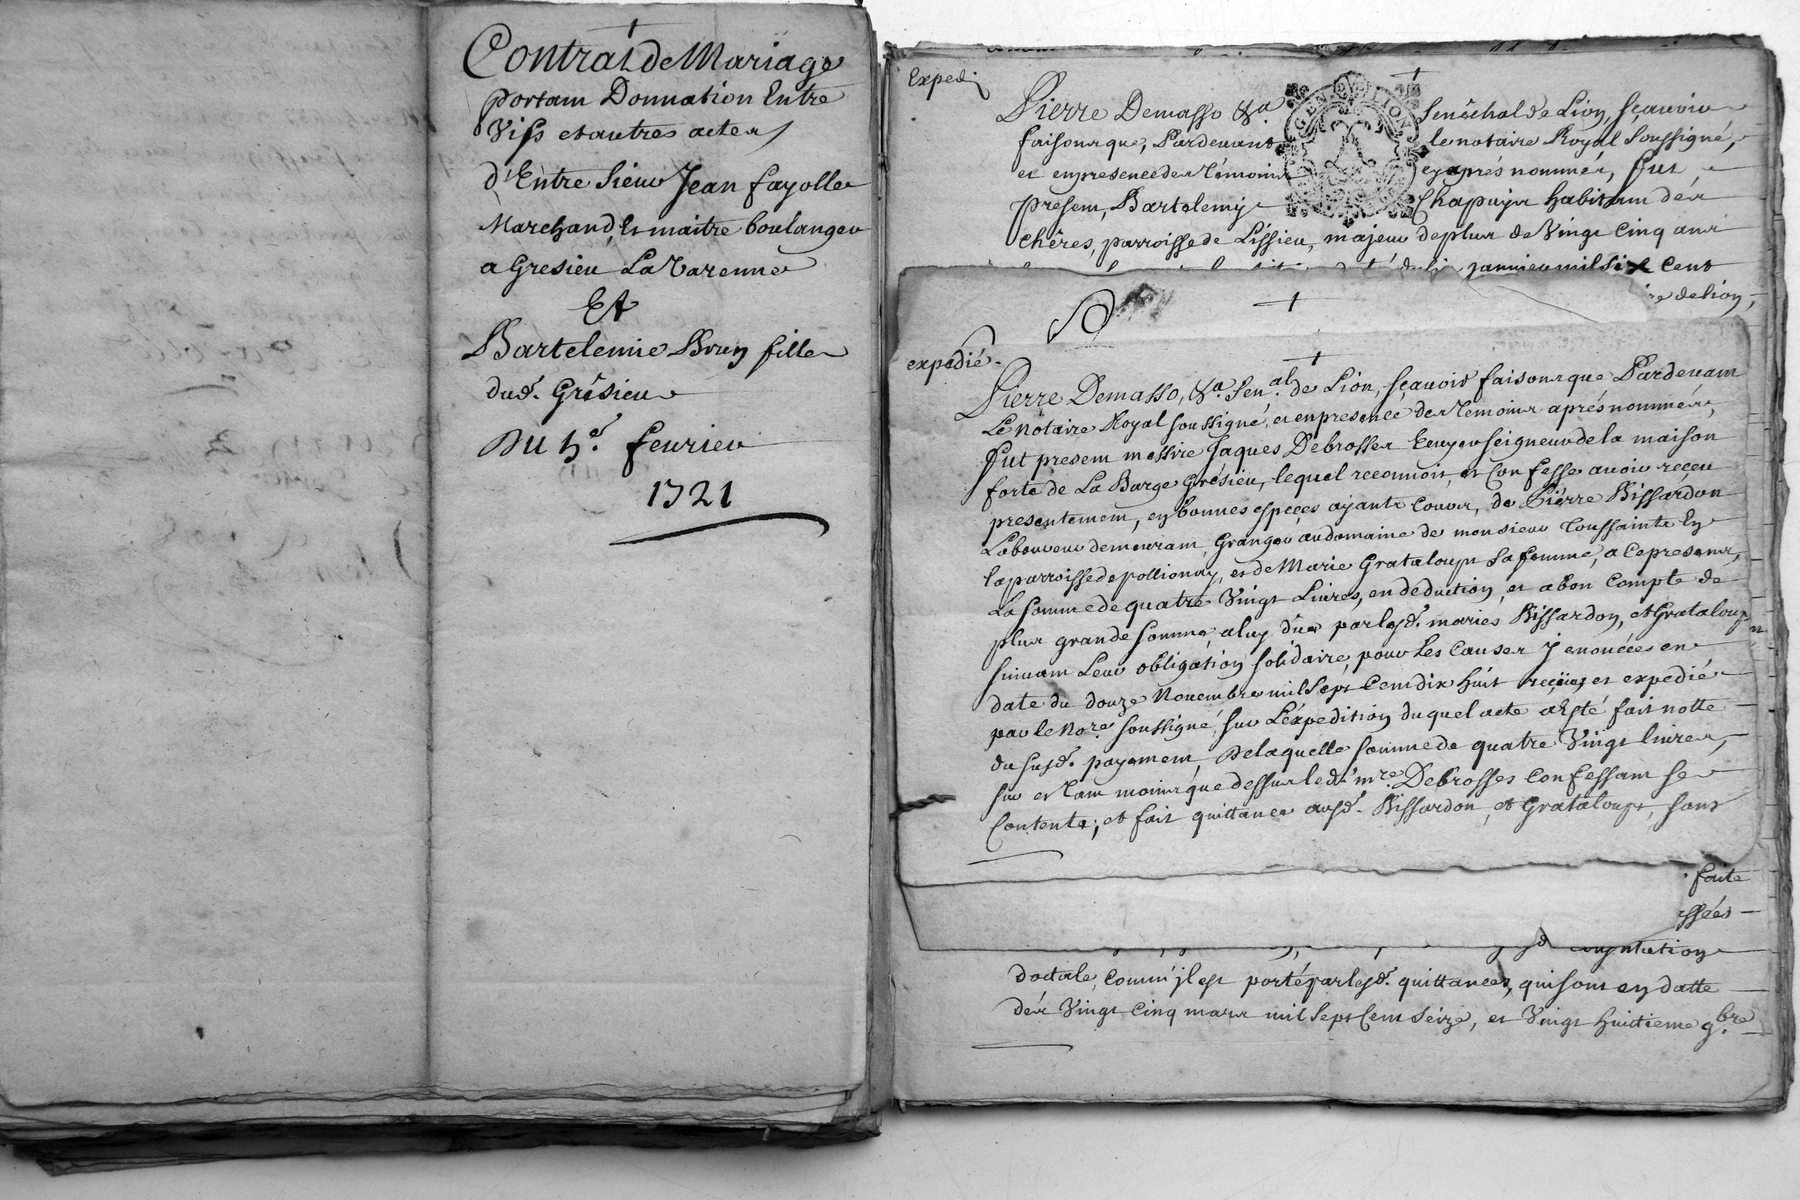 Contrat de Mariage
portam Donnation Entre
Vifs et autres actes
d'Entre Sieur Jean fayolle
Marchand, Et maitre boulanger
a Gresieu La Varenne
Et
Bartelemie Brun fille
dud. Grésieu
Du 5e. feurier
1721
Exped.
Pierre Demasso &a. Senéchal de Lion, sçauoir
faisons que, Pardeuant le notaire Royal soussigné,
et en presence des témoins cy aprés nommés, fut
present, Bartelemy Chapuys habitant des
chéres, parroisse de Lissieu, majeur de plus de Vingt Cinq ans
januier mil six Cent
de lion,
expedié.
Pierre Demasso, &a. Sen.al de Lion, sçauoir faisons que Pardeuant
Le Notaire Royal soussigné, et en presence des temoins aprés nommés,
fut present messire Jaques Debrosses Ecuyer seigneur de la maison
forte de La Barge Grésieu, lequel reconnoit, et Confesse auoir reçeu
presentement, en bonnes espeçes ayants Cours, de Pierre Bissardon
Laboureur demeurant Granger au domaine de monsieur Toussaints En
la parroisse de pollionay, et de Marie Grataloup sa femme, a Ce presents,
La somme de quatre Vingt Liures, en déduction, et a bon Compte de
plus grande somme, a luy düe par lesd. mariés Bissardon, et Grataloup
suiuant Leur obligation solidaire, pour Les Causes y enoncées en
date du douze Nouembre mil sept Cent dix huit reçüe, et expedié
par le No.re soussigné, sur L'éxpedition duquel acte a Esté fait notte
du susd. payement, De laquelle somme de quatre Vingt liures,
sur et tant moins que dessus led. mre. Debrosses Confessant se
Contente; et fait quittance ausd. Bissardon, et Grataloup, sans
forte
dotale, comm'il est porté par lesd. quittances, qui sont en datte
des Vingt Cinq mars mil sept Cent seize, et Vingt huitieme 9bre